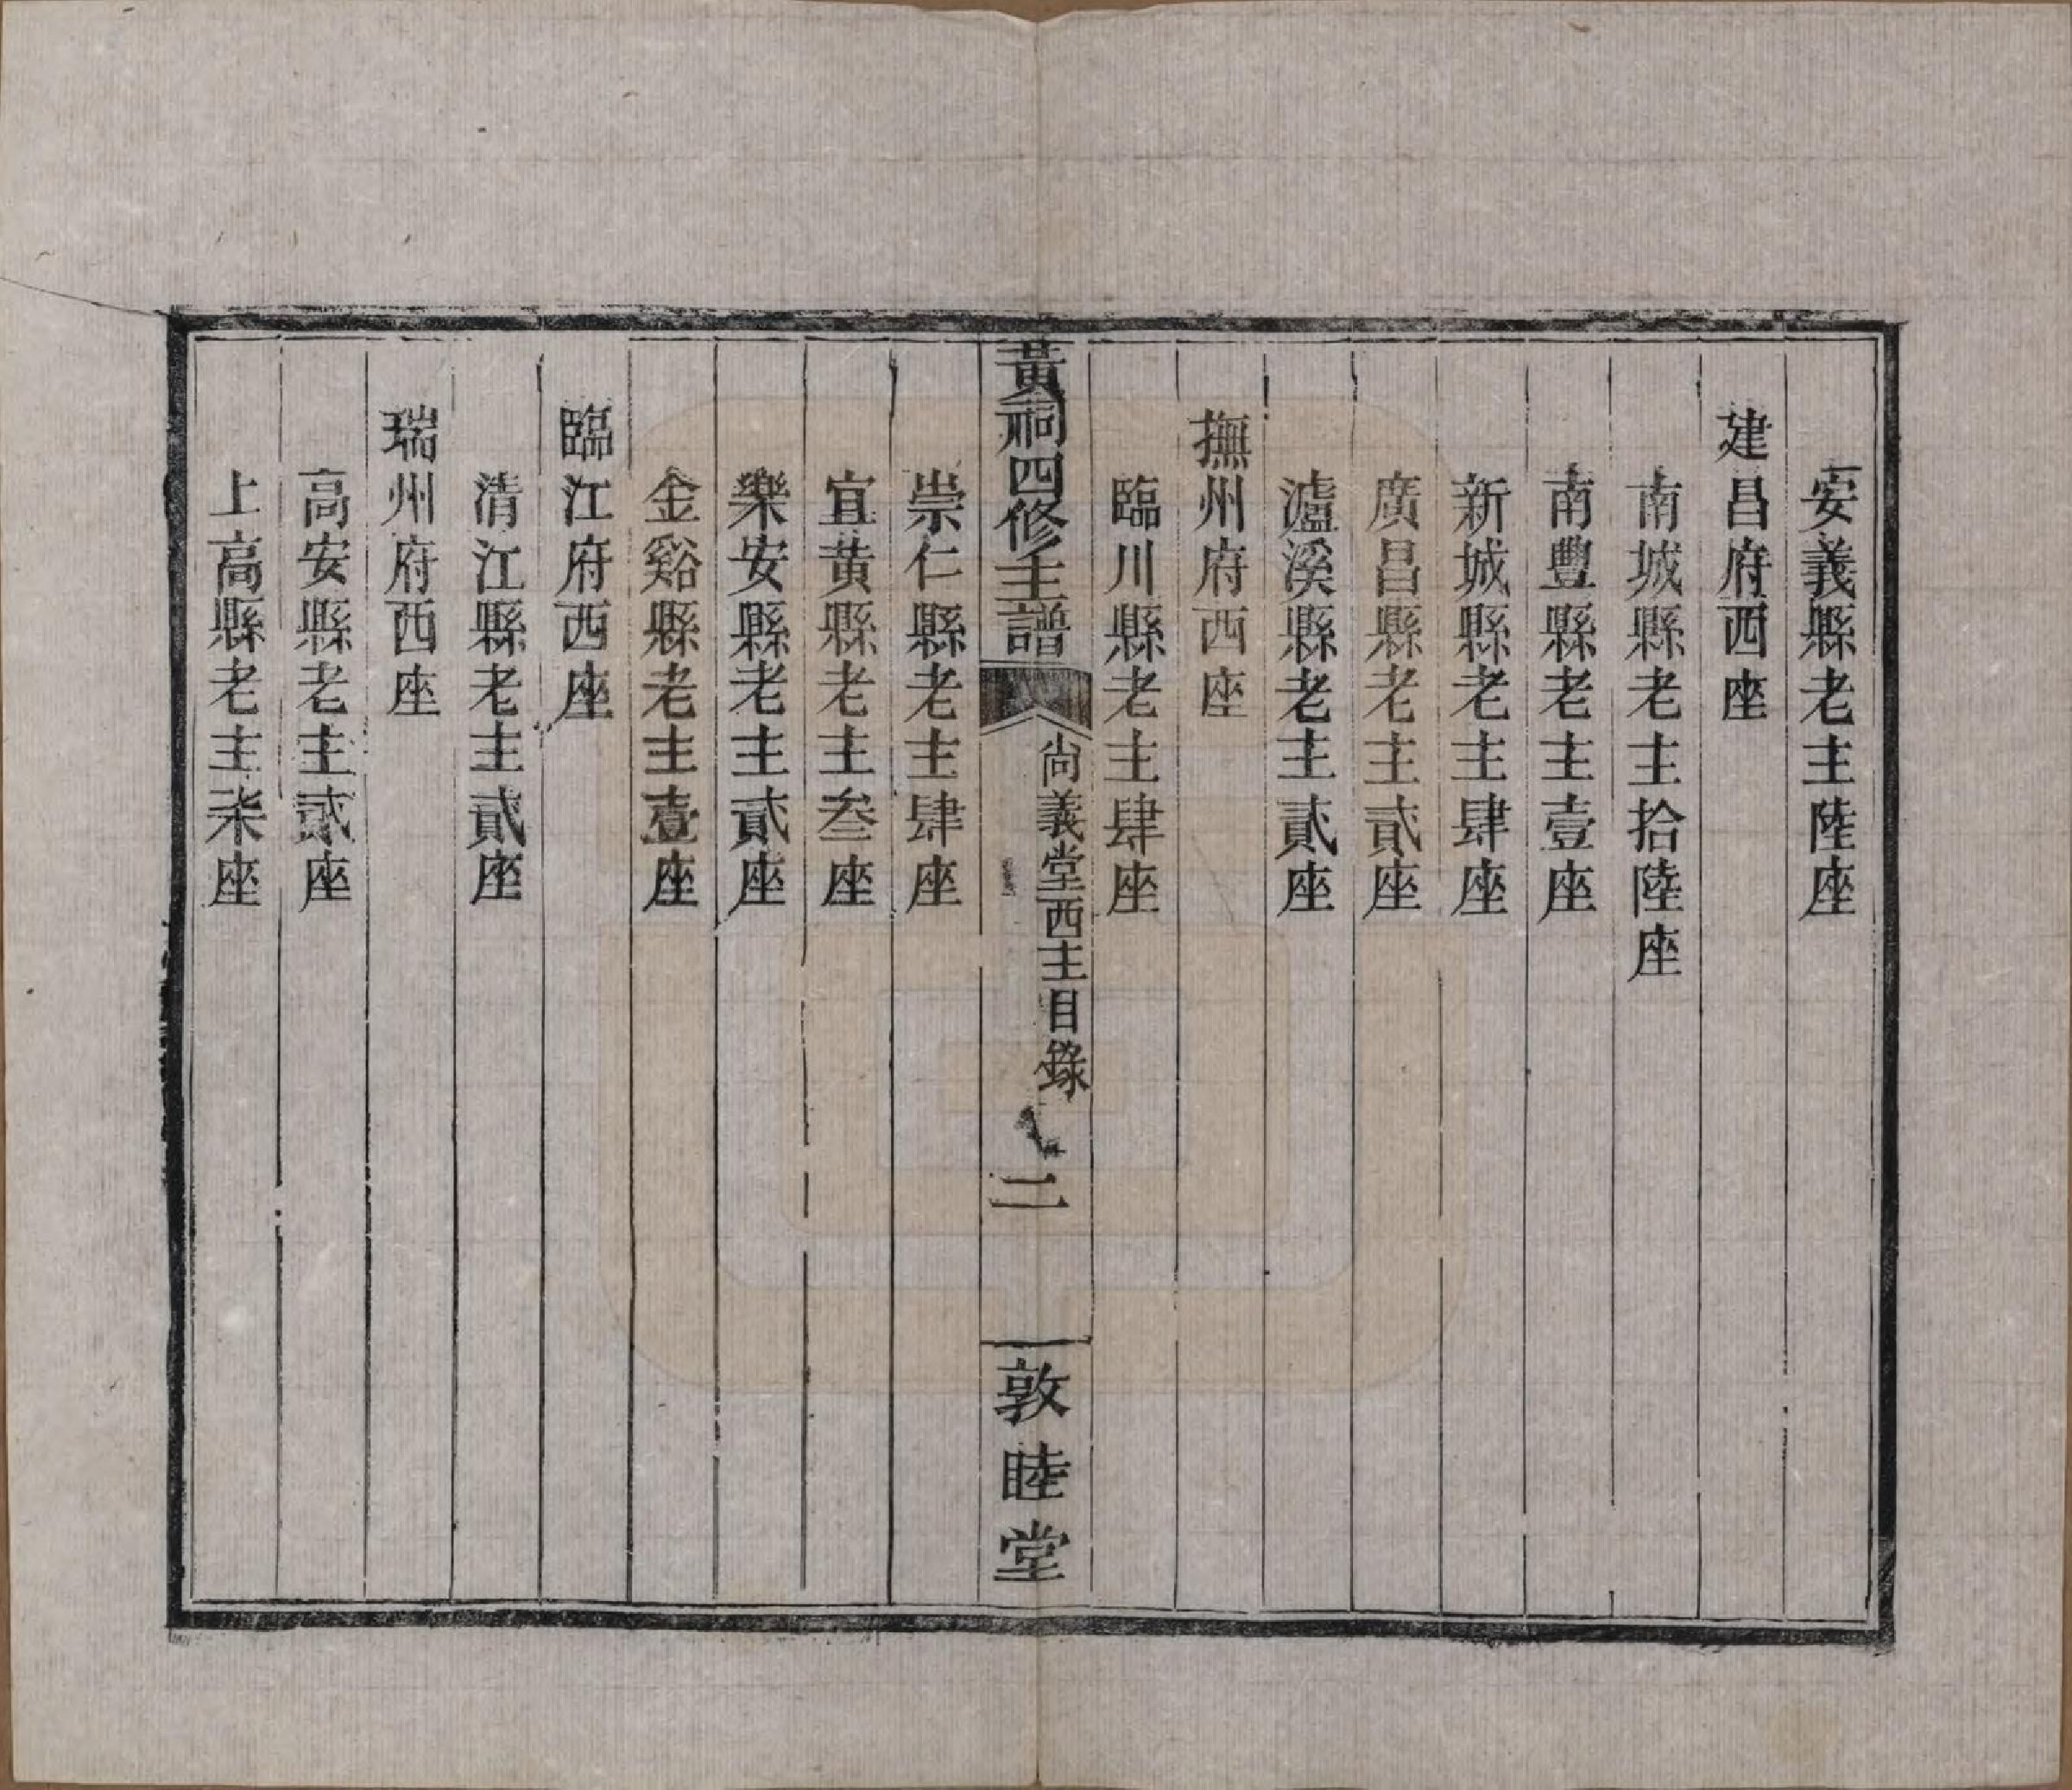 安義縣老主陸座
建昌府西座
南城縣老主拾陸座
南豐縣老主壹座
新城縣老主肆座
廣昌縣老主貳座
瀘溪縣老主貳座
撫州府西座
臨川縣老主肆座
黃祠四修主譜
尚義堂西主目錄
二
敦睦堂
崇仁縣老主肆座
宜黄縣老主叁座
樂安縣老主貳座
金谿縣老主壹座
臨江府西座
清江縣老主貳座
瑞州府西座
高安縣老主貳座
上高縣老主柒座